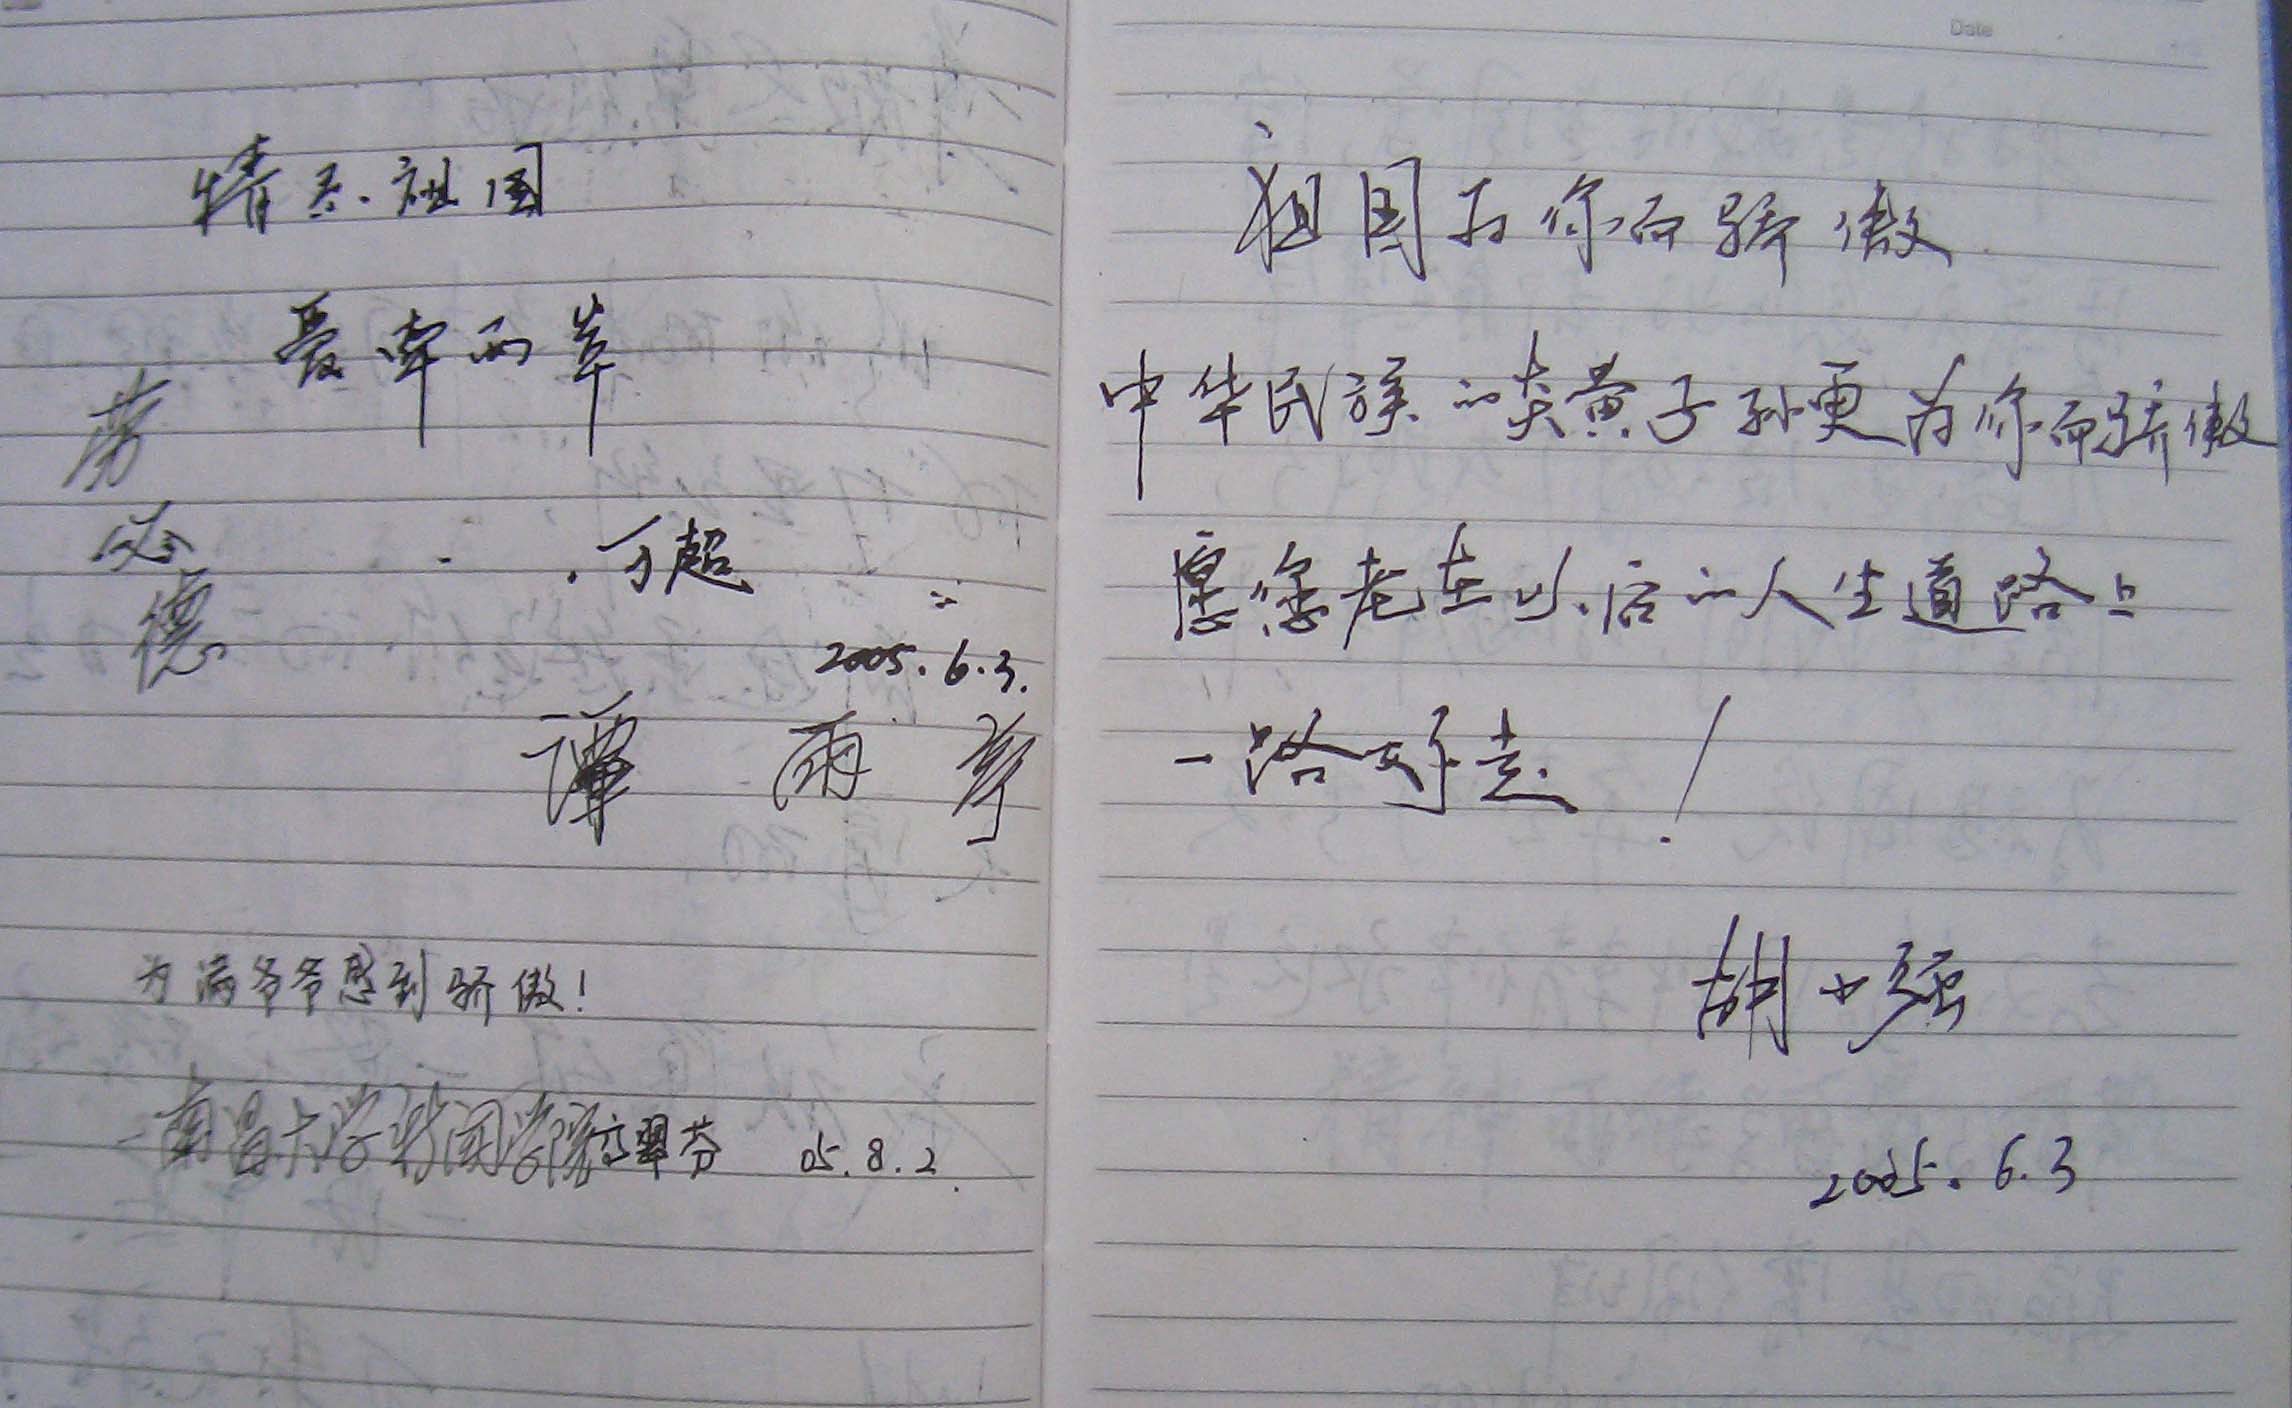 情系祖国
爱牵两岸
万超
2005.6.3.
谭雨
为满爷爷感到骄傲!
南昌大学新闻学院 翠芬 05.8.2
Date
祖国为你而骄傲
中华民族的炎黄子孙更为你而骄傲
愿您老在以后的人生道路上
一路好走!
胡小强
2005.6.3